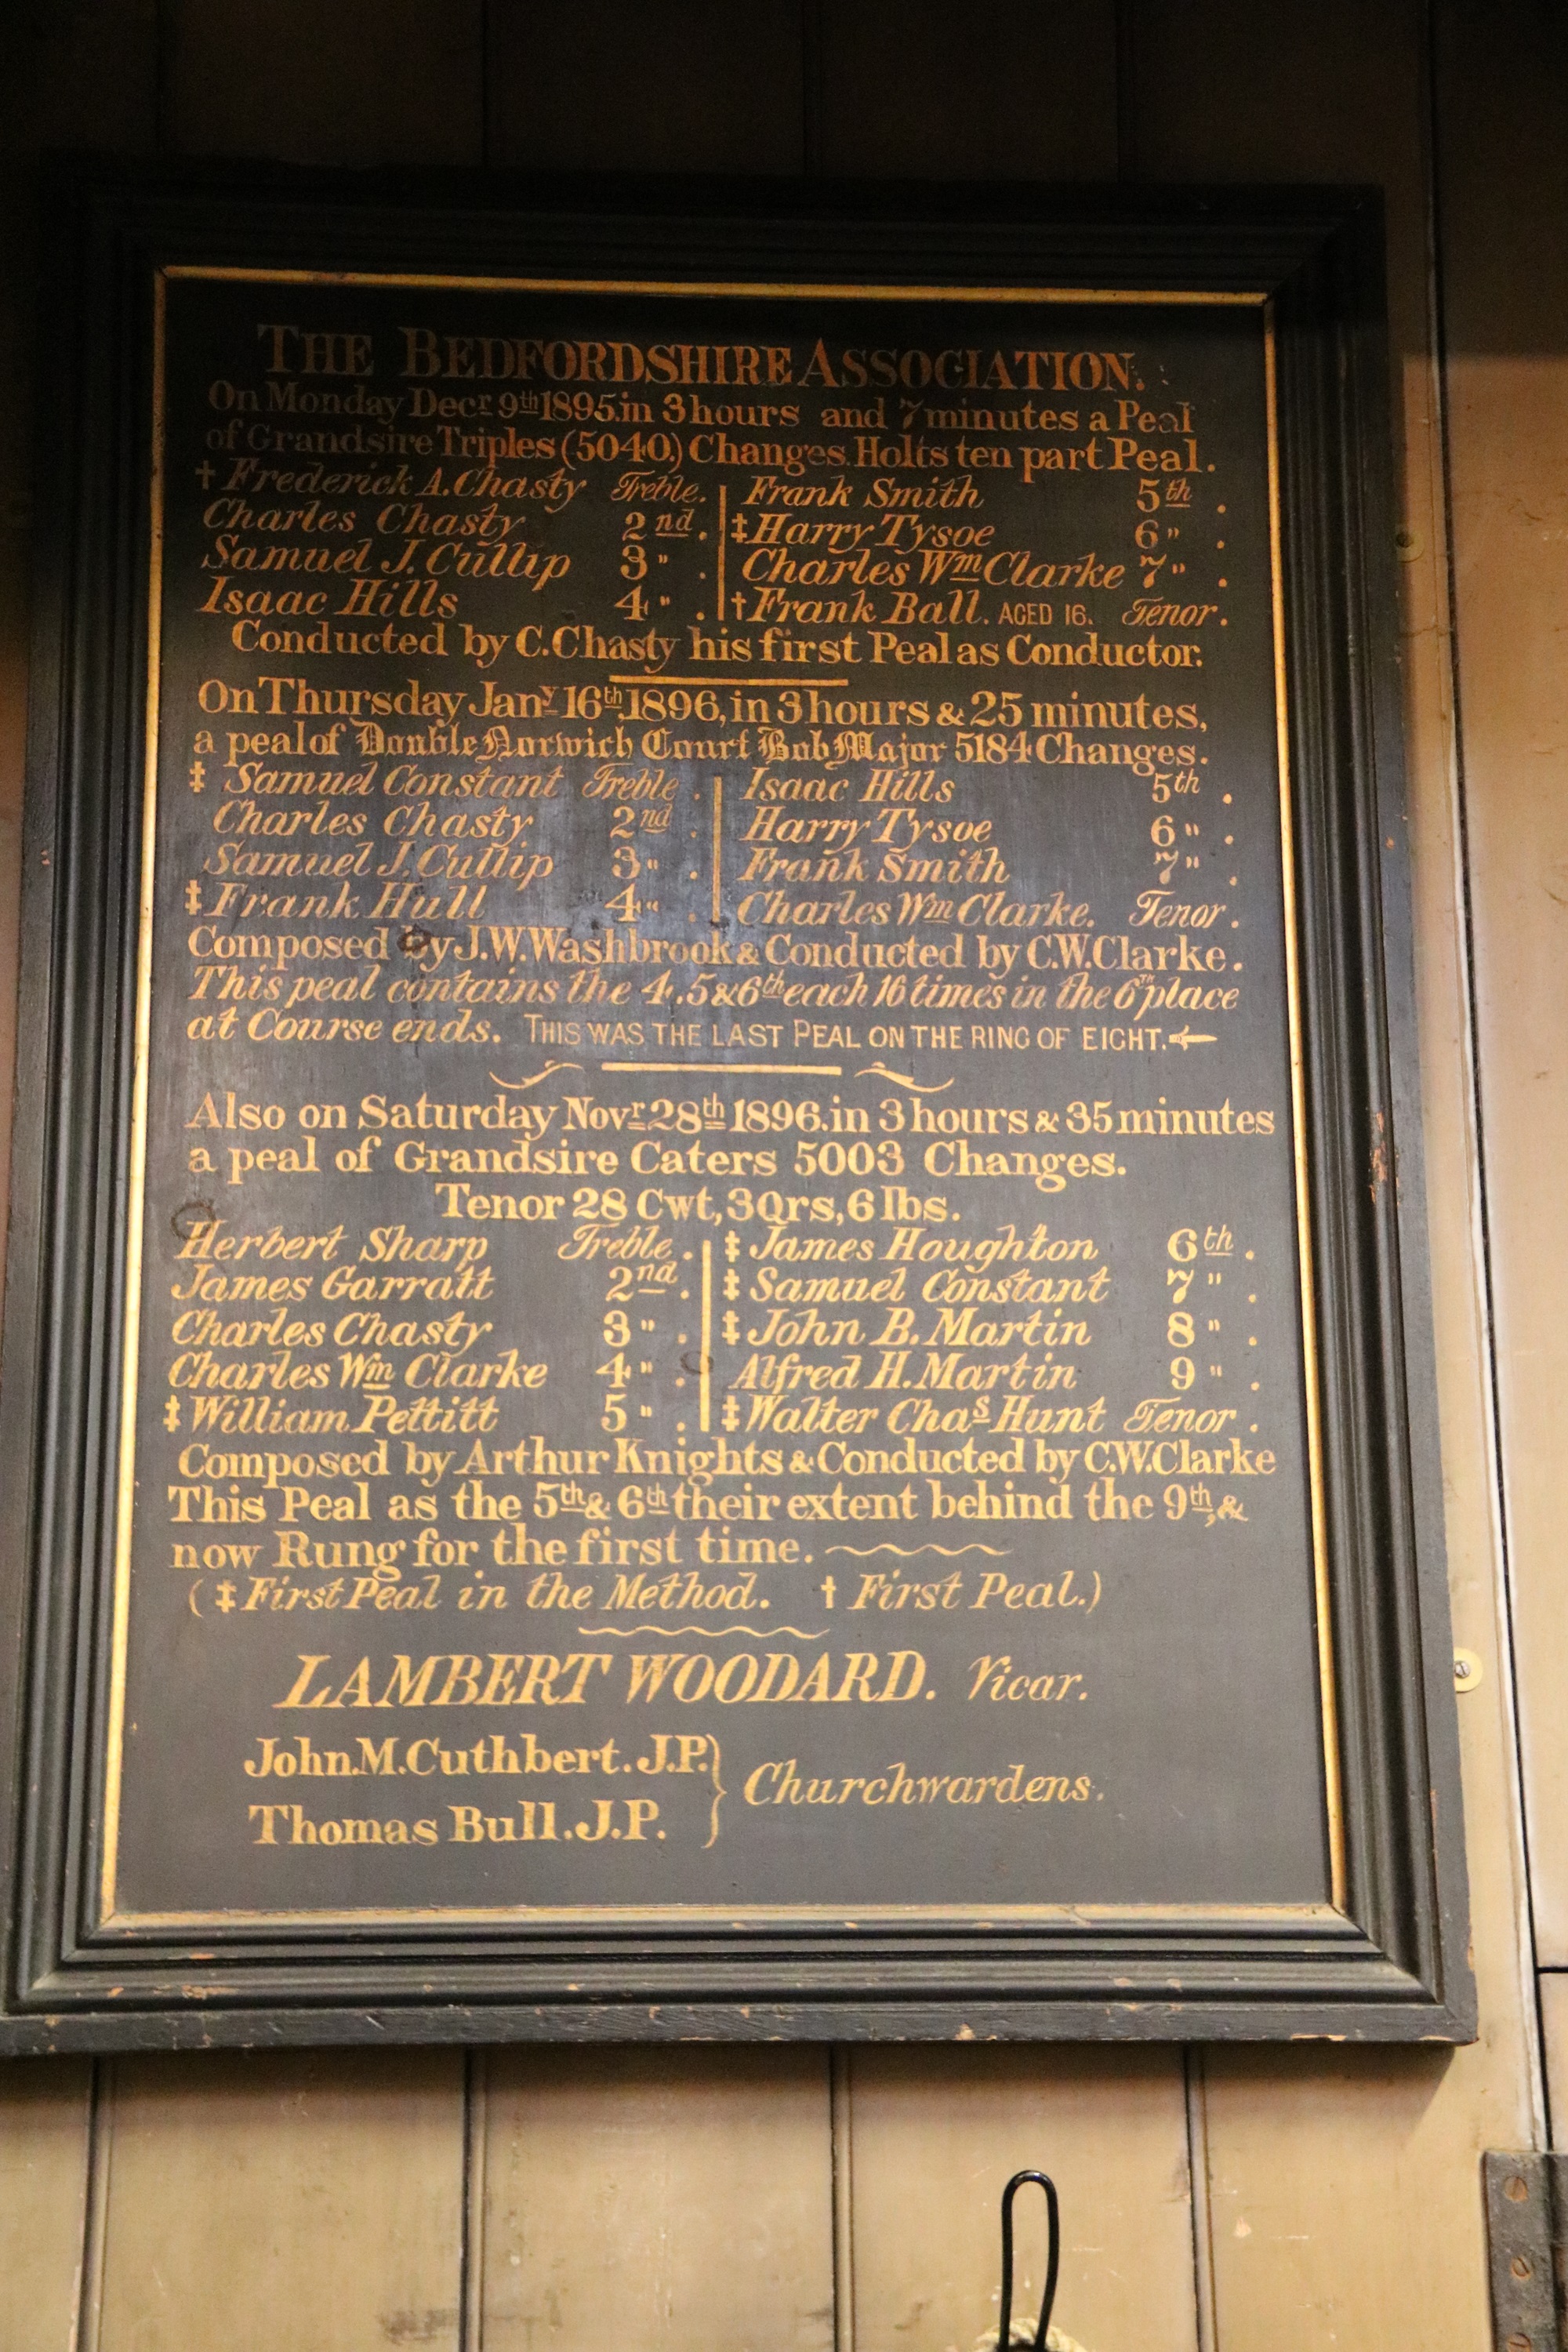 THE BEDFORDSHIRE ASSOCIATION.
On Monday Decr 9th 1895. in 3 hours and 7 minutes a Peal
of Grandsire Triples (5040.) Changes. Holts ten part Peal.
† Frederick A. Chasty Treble. Frank Smith 5th .
Charles Chasty 2nd . ‡ Harry Tysoe 6 " .
Samuel J. Cullip 3 " . Charles Wm Clarke 7 " .
Isaac Hills 4 " . † Frank Ball. AGED 16. Tenor .
Conducted by C. Chasty his first Peal as Conductor.
On Thursday Jany 16th 1896, in 3 hours & 25 minutes,
a peal of Double Norwich Court Bob Major 5184 Changes.
‡ Samuel Constant Treble . Isaac Hills 5th .
Charles Chasty 2nd . Harry Tysoe 6 " .
Samuel J. Cullip 3 " . Frank Smith 7 " .
‡ Frank Hull 4 " . Charles Wm Clarke. Tenor .
Composed by J. W. Washbrook & Conducted by C.W. Clarke.
This peal contains the 4. 5 & 6th each 16 times in the 6TH place
at Course ends. THIS WAS THE LAST PEAL ON THE RING OF EIGHT.
Also on Saturday Novr 28th 1896. in 3 hours & 35 minutes
a peal of Grandsire Caters 5003 Changes.
Tenor 28 Cwt, 3 Qrs, 6 lbs.
Herbert Sharp Treble . ‡ James Houghton 6th .
James Garratt 2nd . ‡ Samuel Constant 7 " .
Charles Chasty 3 " . ‡ John B. Martin 8 " .
Charles Wm Clarke 4 " . Alfred H. Martin 9 " .
‡ William Pettitt 5 " . ‡ Walter Chas Hunt Tenor .
Composed by Arthur Knights & Conducted by C.W. Clarke
This Peal as the 5th & 6th their extent behind the 9th, &
now Rung for the first time.
( ‡ First Peal in the Method. † First Peal.)
LAMBERT WOODARD. Vicar.
John. M. Cuthbert. J.P.
Thomas Bull. J.P. } Churchwardens.